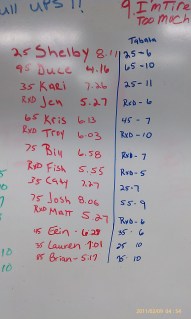 ull ups !!
9. I'm Tire
Too Much
Tabata
25 Shelby 8.11 25-6
95 Duce 4.16 65-10
35 Kari 7.26 25-11
RXD Jen 5.27 RXD-6
65 Kris 6.13 45-7
RXD Troy 6.03 RXD-10
75 Bill 6.58 RXD-7
RXD Fish 5.55 RXD-5
35 Cay 7.27 25-7
75 Josh 8.06 55-9
RXD Matt 5.27 RXD-6
45 Erin - 6.28 35-6
35 Lauren 7.01 25 10
85 Brian - 5:17 35-10
10
10